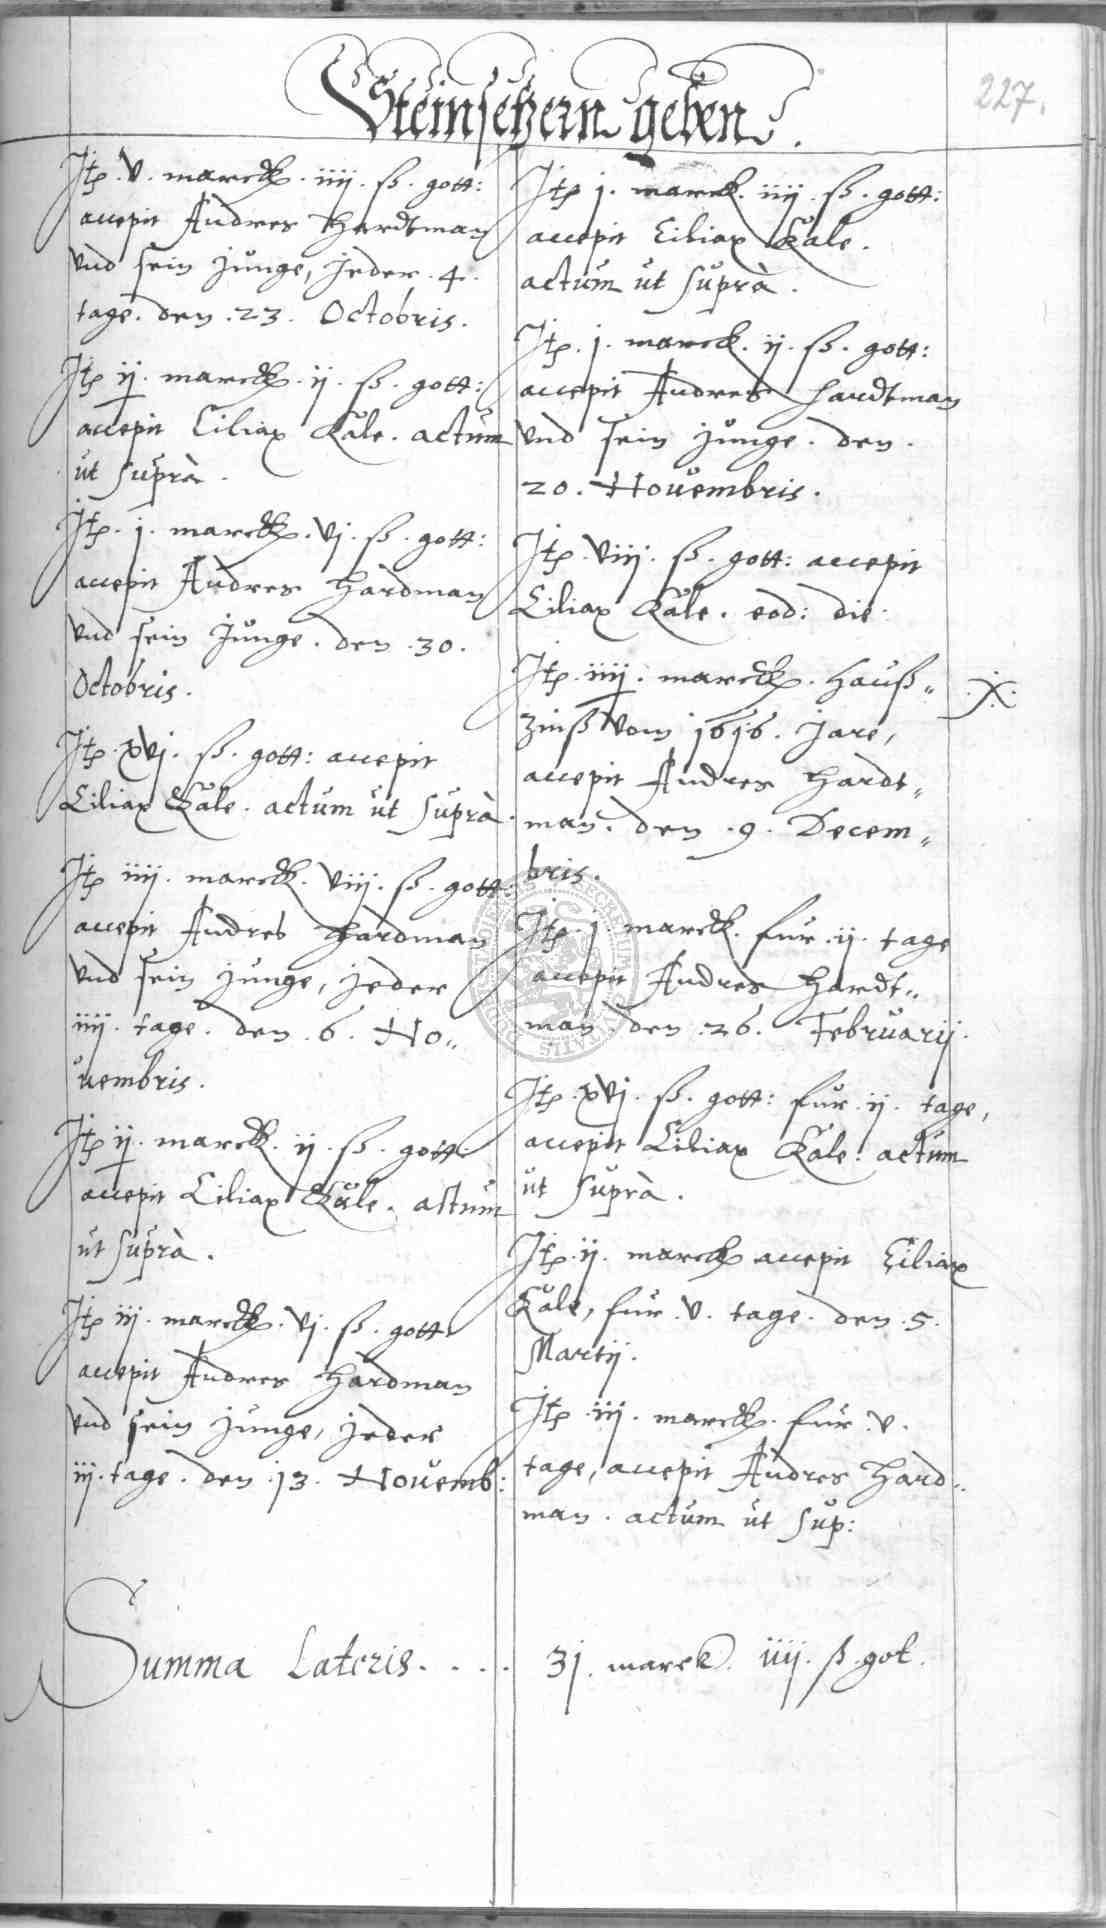 Steinsetzern geben.
227.
Itp. v. marck. iiij. ß. gott:
accepit Andres Hardtman
vnd sein Junge, jeder. 4.
tage. den. 23. Octobris.
Itp ij. marck. ij. ß. gott:
accepit Ciliax Kale. actum
ut suprà.
Itp. j. marck. vj. ß. gott:
accepit Andres Hardman
vnd sein Junge. den. 30.
Octobris.
Itp. xvj. ß. gott: accepit
Ciliax Kale. actum ut suprà.
Itp iiij. marck. viij. ß. gott:
accepit Andres Hardman
vnd sein junge, jeder
iiij. tage. den. 6. No„
uembris.
Itp ij. marck. ij. ß. gott:
accepit Ciliax Kale. actum
ut suprà.
Itp iij. marck. vj. ß. gott
accepit Andres Hardman
vnd sein junge, jeder
iij. tage. den. 13. Novemb:
Itp j. marck. iiij. ß. gott:
accepit Ciliax Kale.
actum ut suprà.
Itp. j. marck. ij. ß. gott:
accepit Andres Hardtman
vnd sein junge. den.
20. Nouembris.
Itp. viij. ß. gott: accepit
Ciliax Kale. eod: die.
Itp. iiij. marck. Hauß„
zinß vom 1616. Jare,
accepit Andres Hardt„
man. den. 9. Decem„
bris.
Itp. j. marck. fur. ij. tage
accepit Andres Hardt„
man den. 26. Februarij.
Itp. xvj. ß. gott: fur. ij. tage,
accepit Ciliax Kale. actum
ut suprà.
Itp. ij. marck accepit Ciliax
Kale, fur. v. tage. den. 5.
Martij.
Itp. iij. marck. fur. v.
tage, accepit Andres Hard„
man. actum ut sup:
Summa Lateris.... 31. marck. iiij. ß. got.